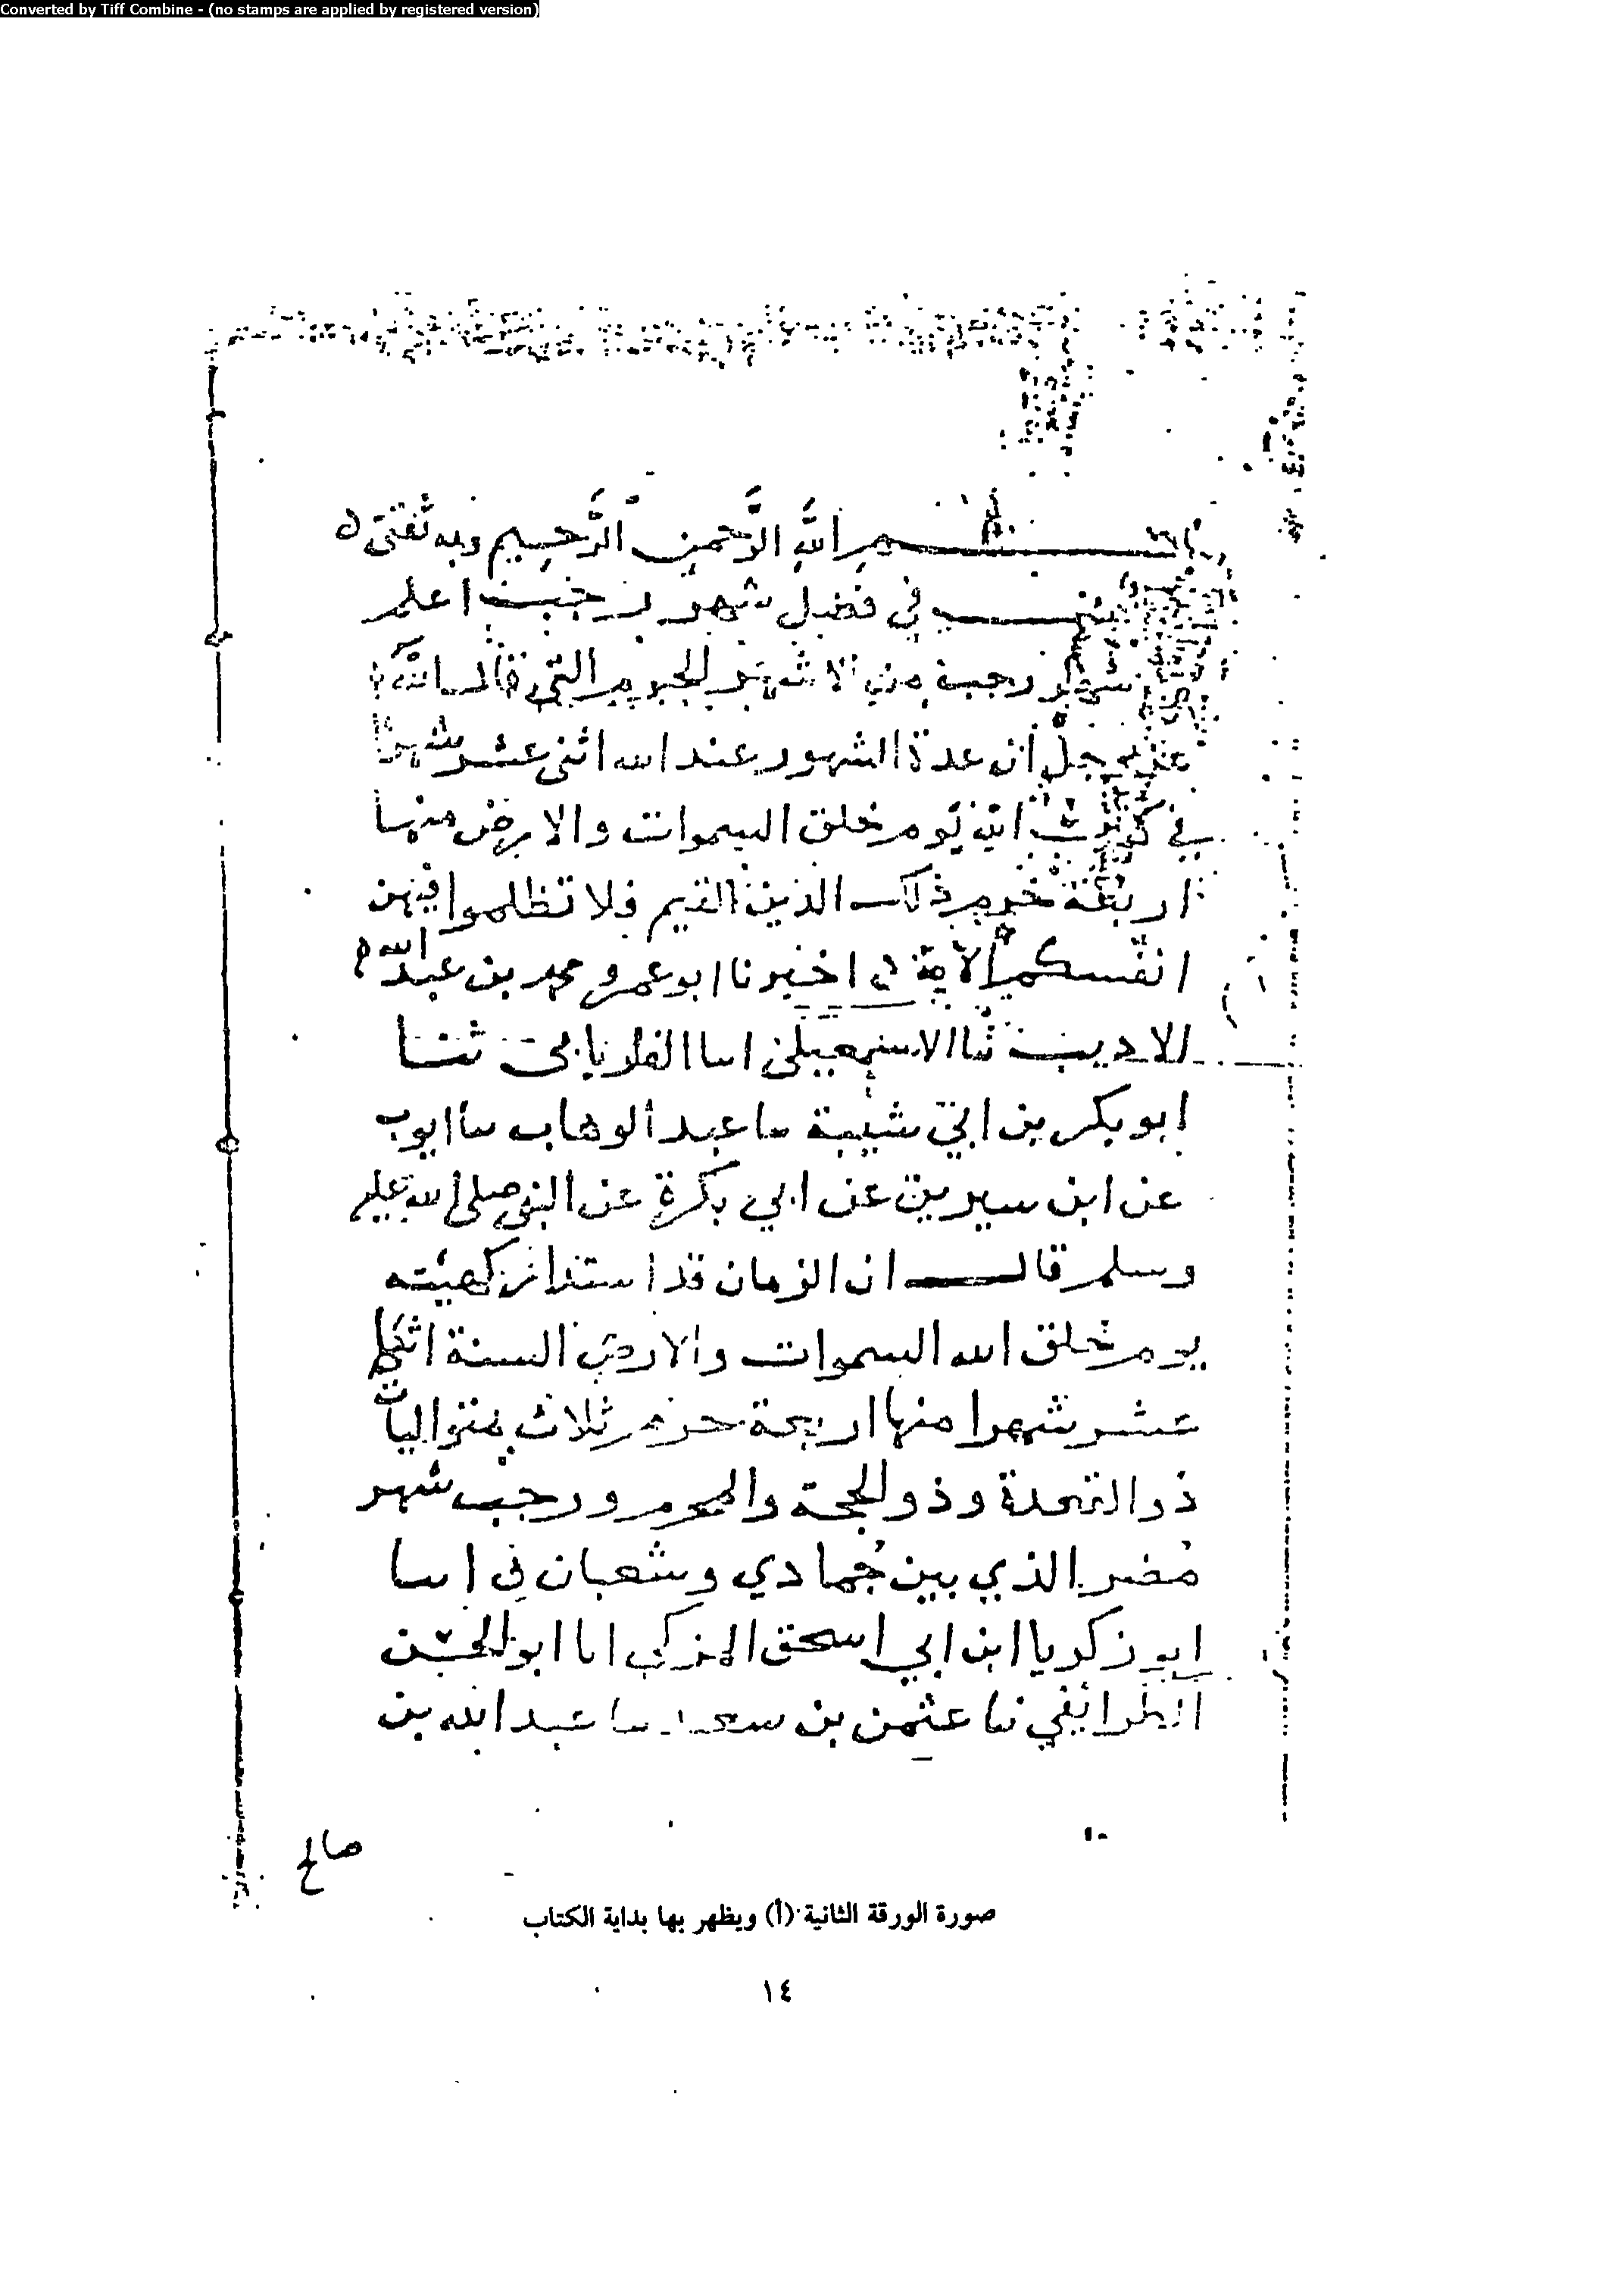 Converted by Tiff Combine - (no stamps are applied by registered version)
بسم الله الرحمن الرحيم وبه ثقتي
في فضل شهر رجب اعلم
شهر رجب من الاشهر الحرم التي قال الله
عز وجل ان عدة الشهور عند الله اثنى عشر شهرا
في كتاب الله يوم خلق السموات والارض منها
اربعة حرم ذلك الدين القيم فلا تظلموا فيهن
انفسكم الاية اخبرنا ابو عمرو محمد بن عبد الله
الاديب ثنا الاسمعيلي انا الفاريابي ثنا
ابو بكر بن ابي شيبة نا عبد الوهاب نا ايوب
عن ابن سيرين عن ابي بكرة عن النبي صلى الله عليه
وسلم قال ان الزمان قد استدار كهيئته
يوم خلق الله السموات والارض السنة اثنا
عشر شهرا منها اربعة حرم ثلاث متواليات
ذو القعدة وذو الحجة والمحرم ورجب شهر
مُضر الذي بين جُمادي وشعبان انا
ابو زكريا ابن ابي اسحق المزكي انا ابو الحسن
الطرائفي نا عثمن بن سعيد نا عبد الله بن
صالح
صورة الورقة الثانية (أ) ويظهر بها بداية الكتاب
١٤